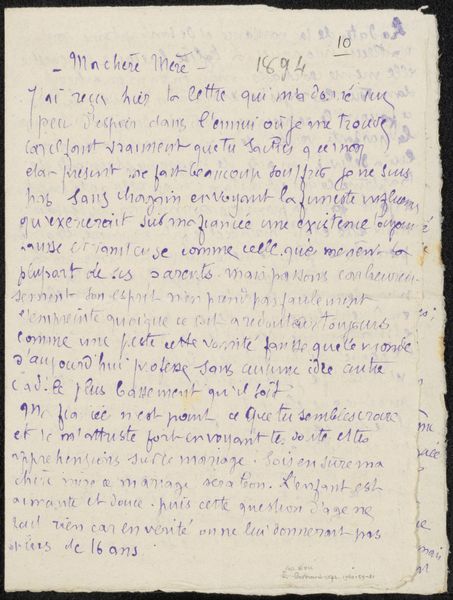 10
1894
- Ma chère Mère -
J'ai reçu hier ta lettre qui m'a donné un
peu d'espoir dans l'ennui où je me trouve
car il faut vraiment que tu saches que mon
etat présent me fait beaucoup souffrir je ne suis
pas sans chagrin en voyant la funeste
qu'exercerait sur ma fiancée une existence
fausse et comme celle que mènent la
plupart de ses parents mais passons car heureu-
sement son esprit n'en prend pas seulement
l'empreinte quoique ce soit a redouter toujours
comme une peste cette vanité fausse que le monde
d'aujourd'hui professe sans aucune idée autre
c'a dire plus bassement qu'il soit
Ma fiancée n'est point ce que tu sembles croire
et je m'attriste fort en voyant tes doutes et tes
apprehensions sur ce mariage. Sois en sure ma
chère mère ce mariage sera bon. L'enfant est
aimante et douce. puis cette question d'age ne
fait rien car en verité on ne lui donnerait pas
de 16 ans.